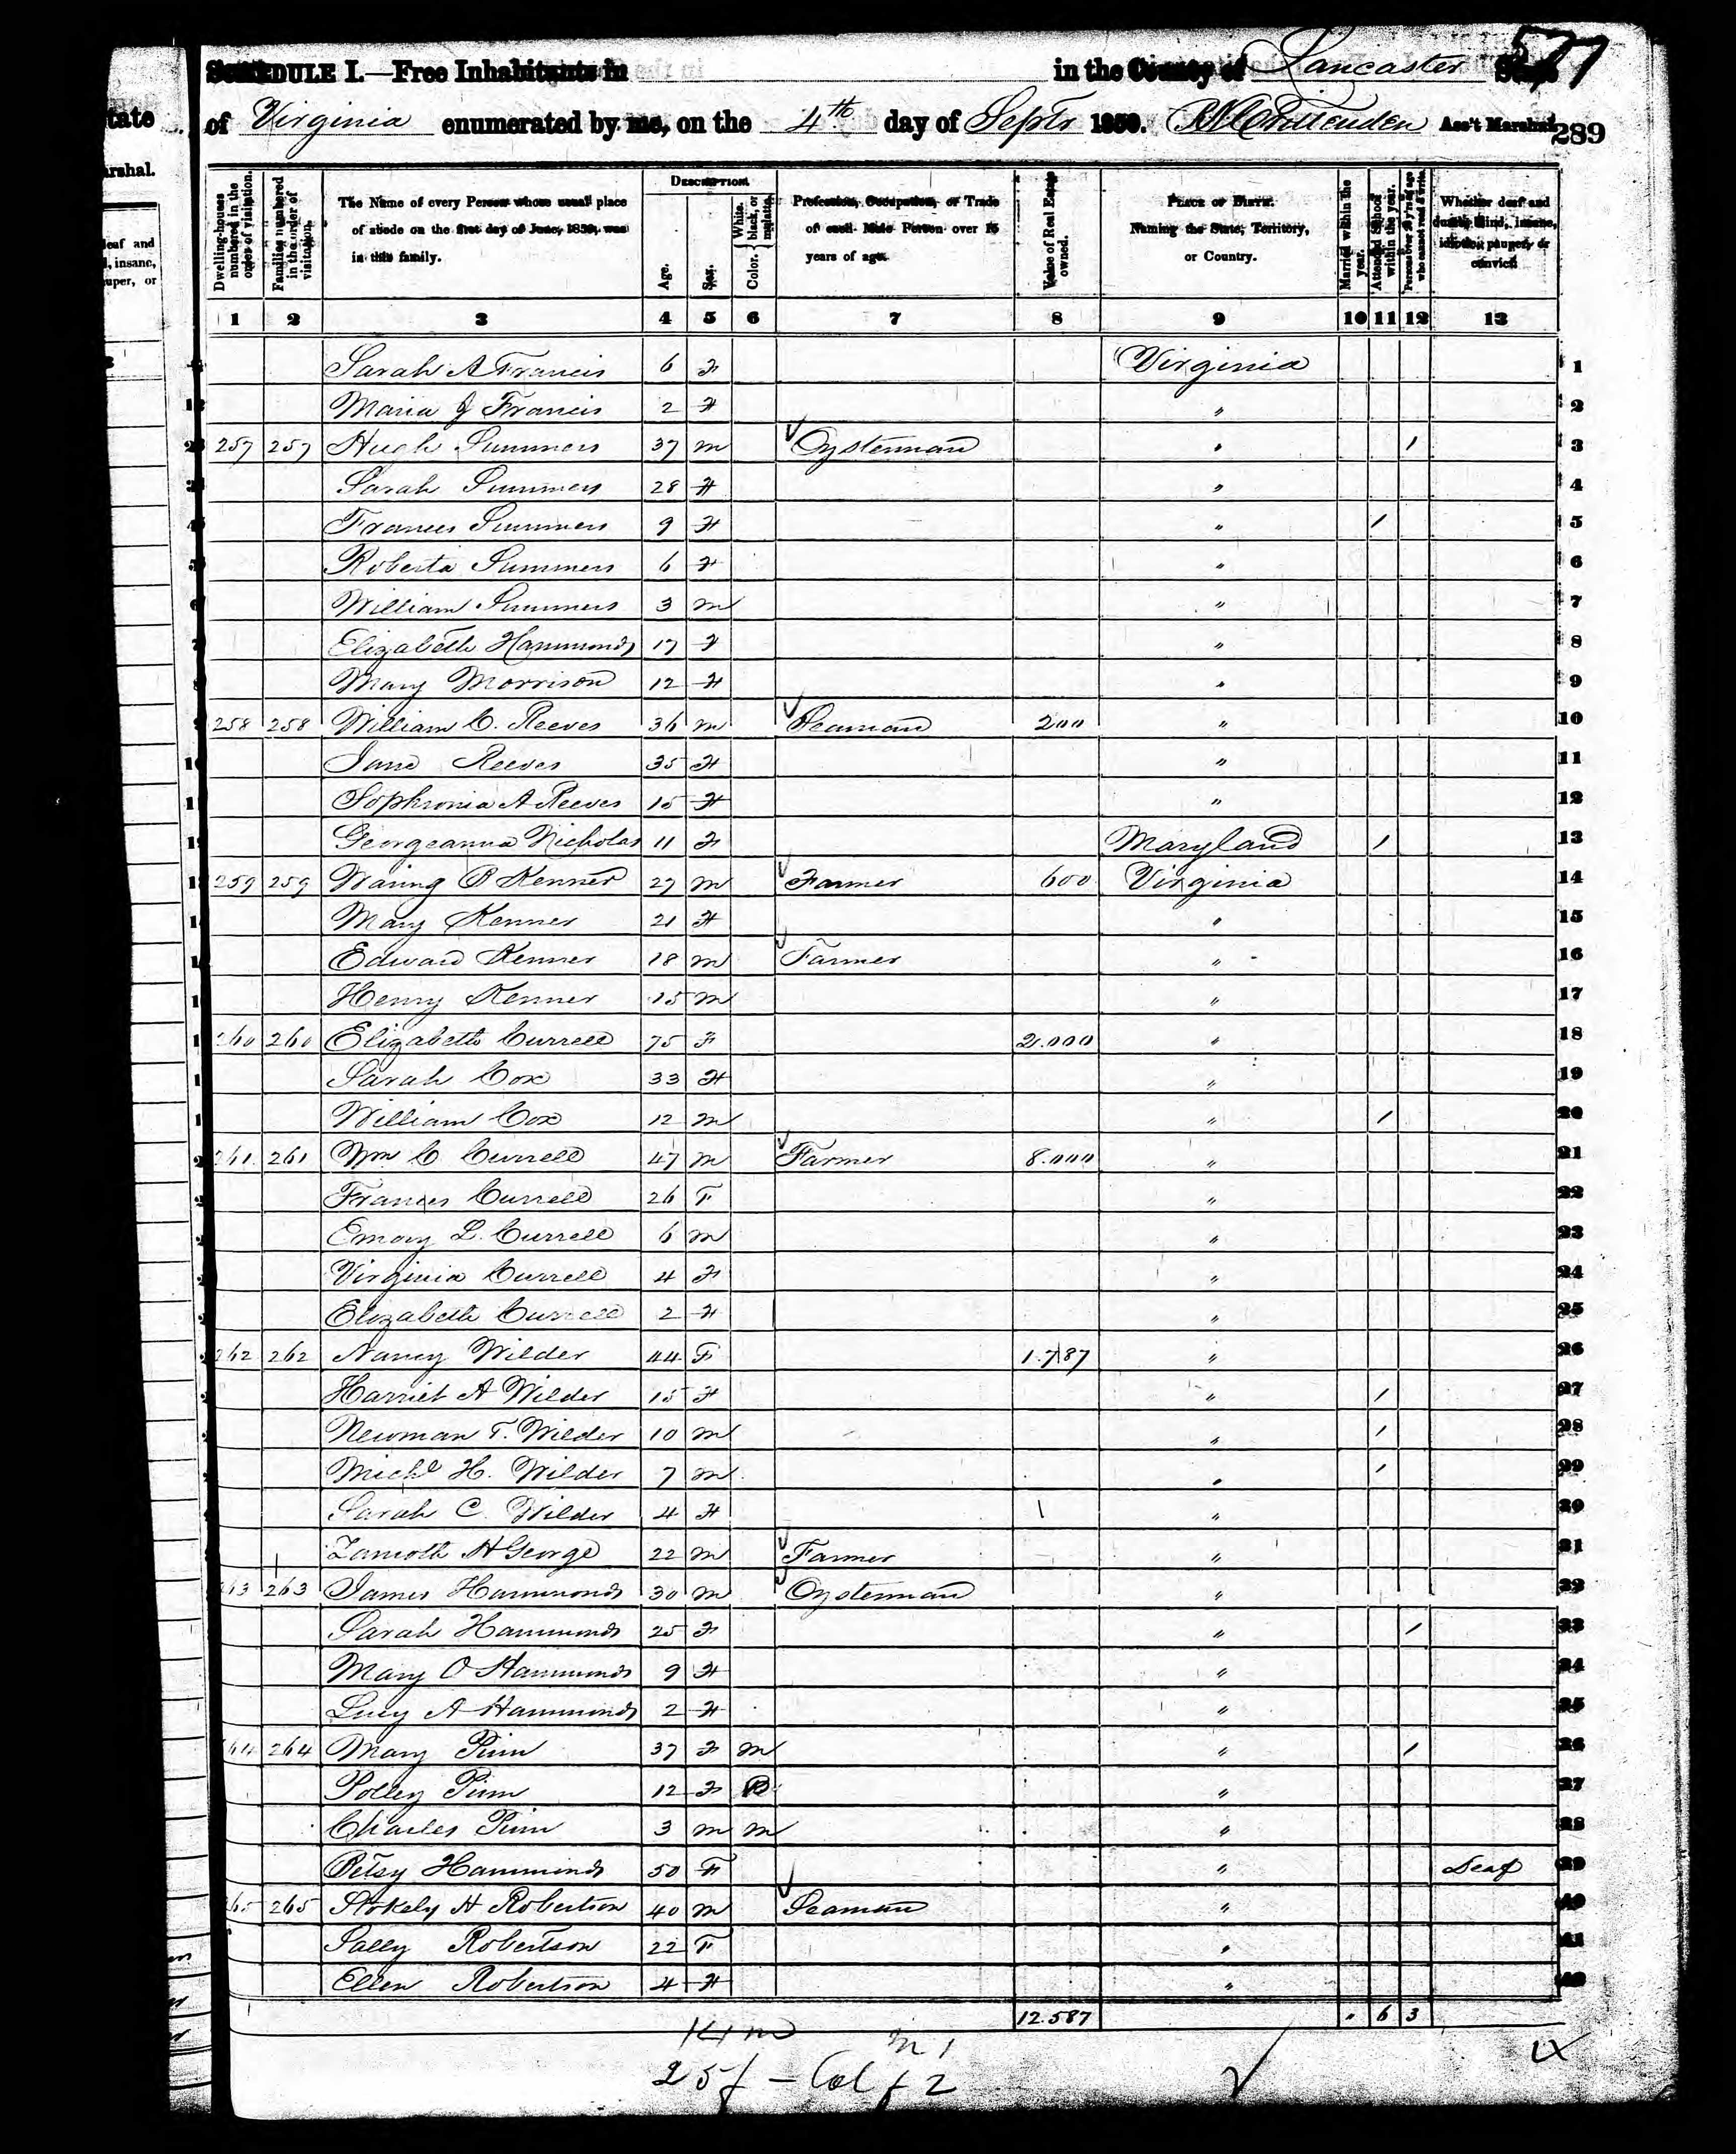 577
SCHEDULE I.—Free Inhabitants in in the County of Lancaster State
of Virginia enumerated by me, on the 4th day of Septr 1850. Ass't Marshal. 289
tate
arshal.
leaf and
l, insane,
uper, or
Dwelling-houses numbered in the order of visitation.
Families numbered in the order of visitation.
The Name of every Person whose usual place of abode on the first day of June, 1850, was in this family.
DESCRIPTION.
Age.
Sex.
Color. White, black, or mulatto.
Profession, Occupation, or Trade of each Male Person over 15 years of age.
Value of Real Estate owned.
PLACE OF BIRTH. Naming the State, Territory, or Country.
Married within the year.
Attended School within the year.
Persons over 20 y'rs of age who cannot read & write.
Whether deaf and dumb, blind, insane, idiotic, pauper, or convict.
1 2 3 4 5 6 7 8 9 10 11 12 13
Sarah A Francis 6 F Virginia 1
Maria J Francis 2 F " 2
257 257 Hugh Summers 37 m Oysterman " / 3
Sarah Summers 28 F " 4
Frances Summers 9 F " / 5
Roberta Summers 6 F " 6
William Summers 3 m " 7
Elizabeth Hammonds 17 F " 8
Mary Morrison 12 F " 9
258 258 William C. Reeves 36 m Seaman 200 " 10
Jane Reeves 35 F " 11
Sophronia A Reeves 15 F " 12
Georgeanna Nicholas 11 F Maryland / 13
259 259 Waring B Kenner 27 m Farmer 600 Virginia 14
Mary Kenner 21 F " 15
Edward Kenner 18 m Farmer " 16
Henry Kenner 15 m " 17
260 260 Elizabeth Currell 75 F 2.000 " 18
Sarah Cox 33 F " 19
William Cox 12 m " / 20
261 261 Wm C Currell 47 m Farmer 8.000 " 21
Frances Currell 26 F " 22
Emory L. Currell 6 m " 23
Virginia Currell 4 F " 24
Elizabeth Currell 2 F " 25
262 262 Nancy Wilder 44 F 1.787 " 26
Harriet A Wilder 15 F " / 27
Newman T. Wilder 10 m " / 28
Michl H. Wilder 7 m " / 29
Sarah C. Wilder 4 F " 30
H George 22 m Farmer " 31
263 263 James Hammonds 30 m Oysterman " 32
Sarah Hammonds 25 F " / 33
Mary O Hammonds 9 F " 34
Lucy A Hammonds 2 F " 35
264 264 Mary Pinn 37 F m " / 36
Polley Pinn 12 F B " 37
Charles Pinn 3 m m " 38
Betsy Hammonds 50 F " Deaf 39
265 265 Stokely H Robertson 40 m Seaman " 40
Sally Robertson 22 F " 41
Ellen Robertson 4 F " 42
12.587 " 6 3
m 1
25f - Col f 2